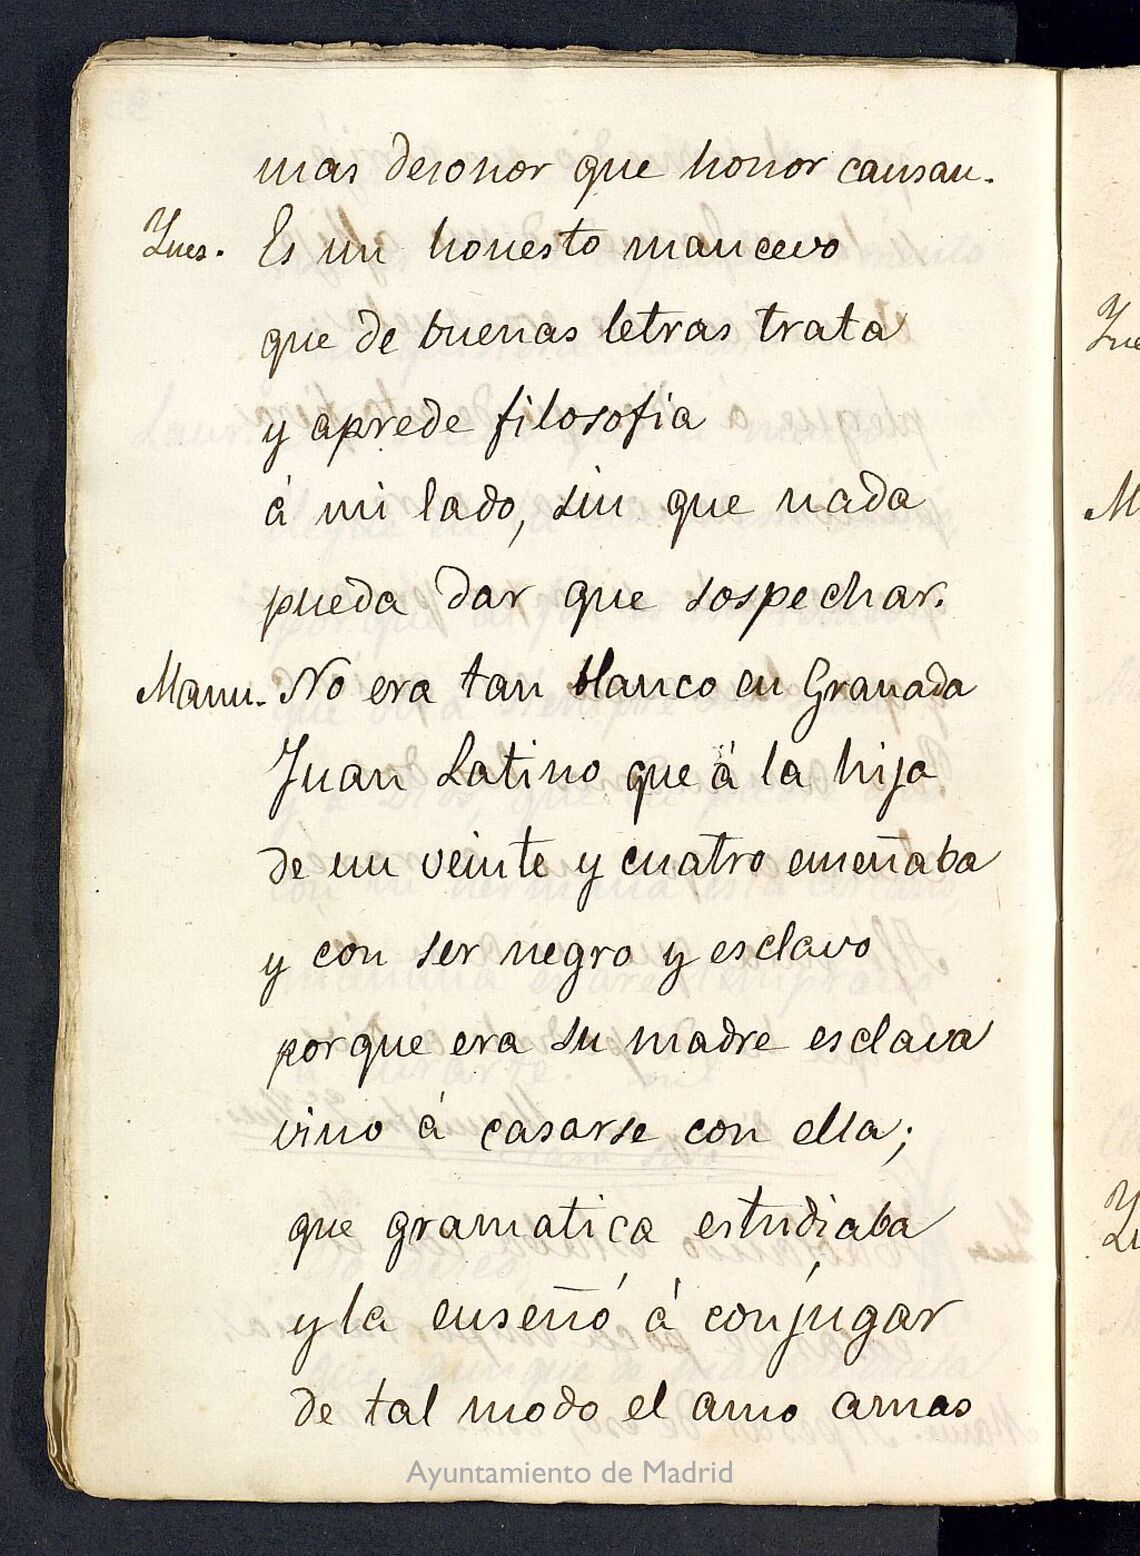 mas desonor que honor causan.
Ynes. Es un honesto mancevo
que de buenas letras trata
y aprede filosofia
á mi lado, sin que nada
pueda dar que sospechar.
Manu. No era tan blanco en Granada
Juan Latino que á la hija
de un veinte y cuatro enseñaba
y con ser negro y esclavo
porque era su madre esclava
vino á casarse con ella;
que gramatica estudiaba
y la enseñó á conjugar
de tal modo el amo amas
Ayuntamiento de Madrid